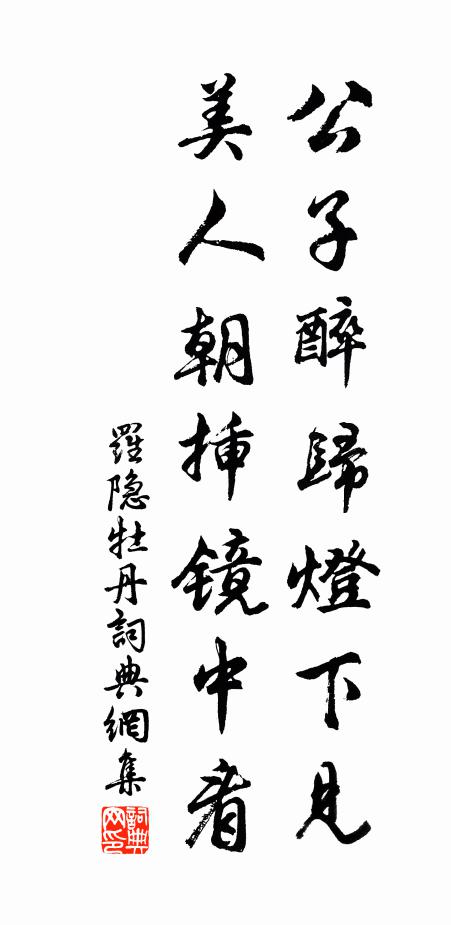 公子醉歸燈下見
美人朝插镜中看
羅隐牡丹詞典網集
詞典网印